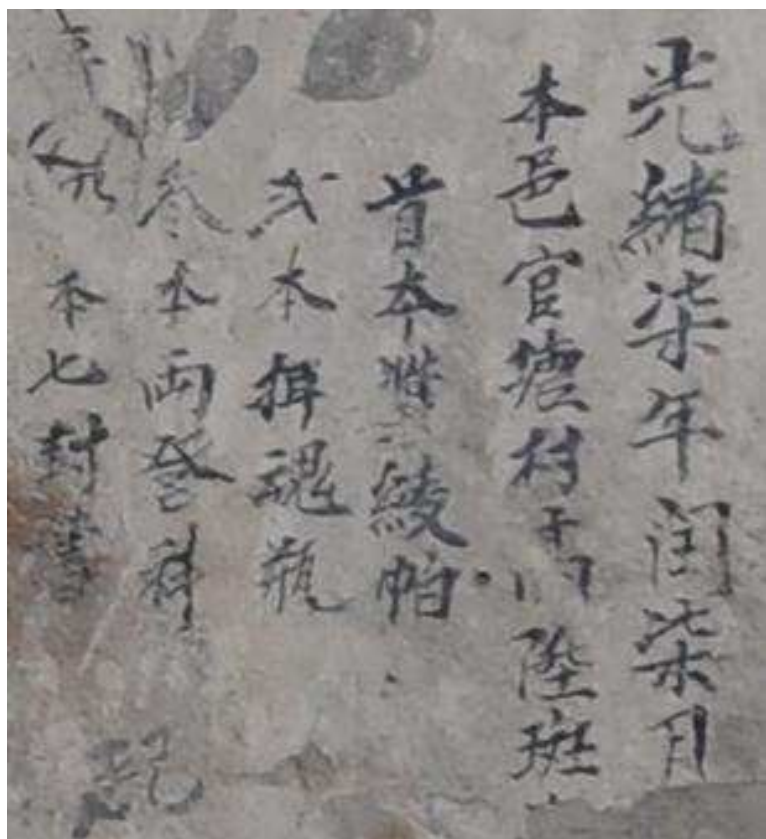 光緒柒年閏柒月
本邑官塘村高陞班
首本雙綾帕
弍本摄魂瓶
叁本両登科
本七封書
記